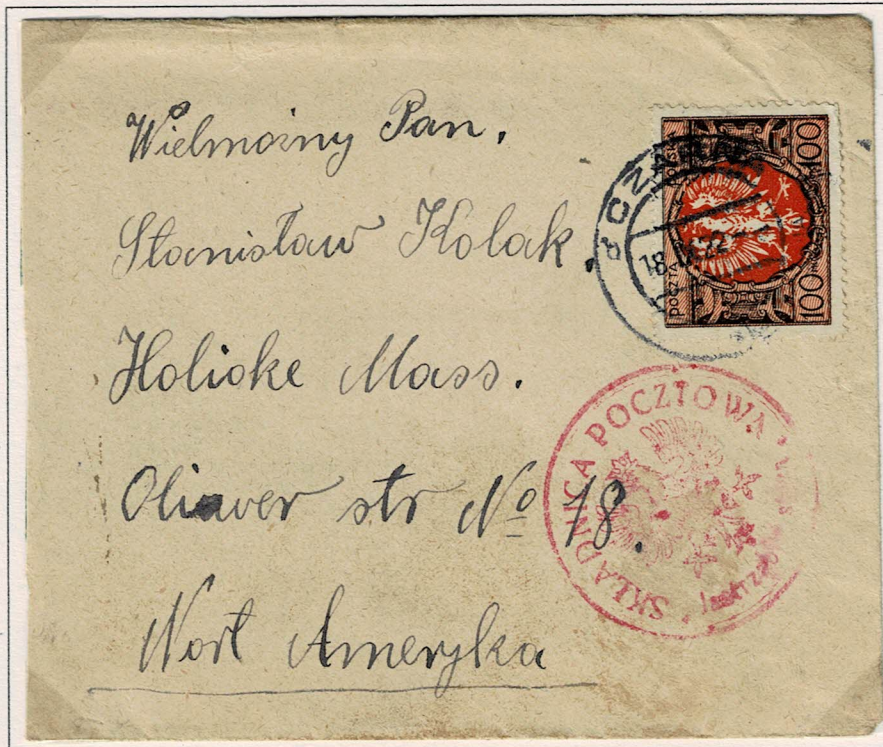 Wielmożny Pan.
Stanisław Kolak.
Holioke Mass.
Oliawer str № 18.
Nort Ameryka
100
100
18.IX.22
SKŁADNICA POCZTOWA